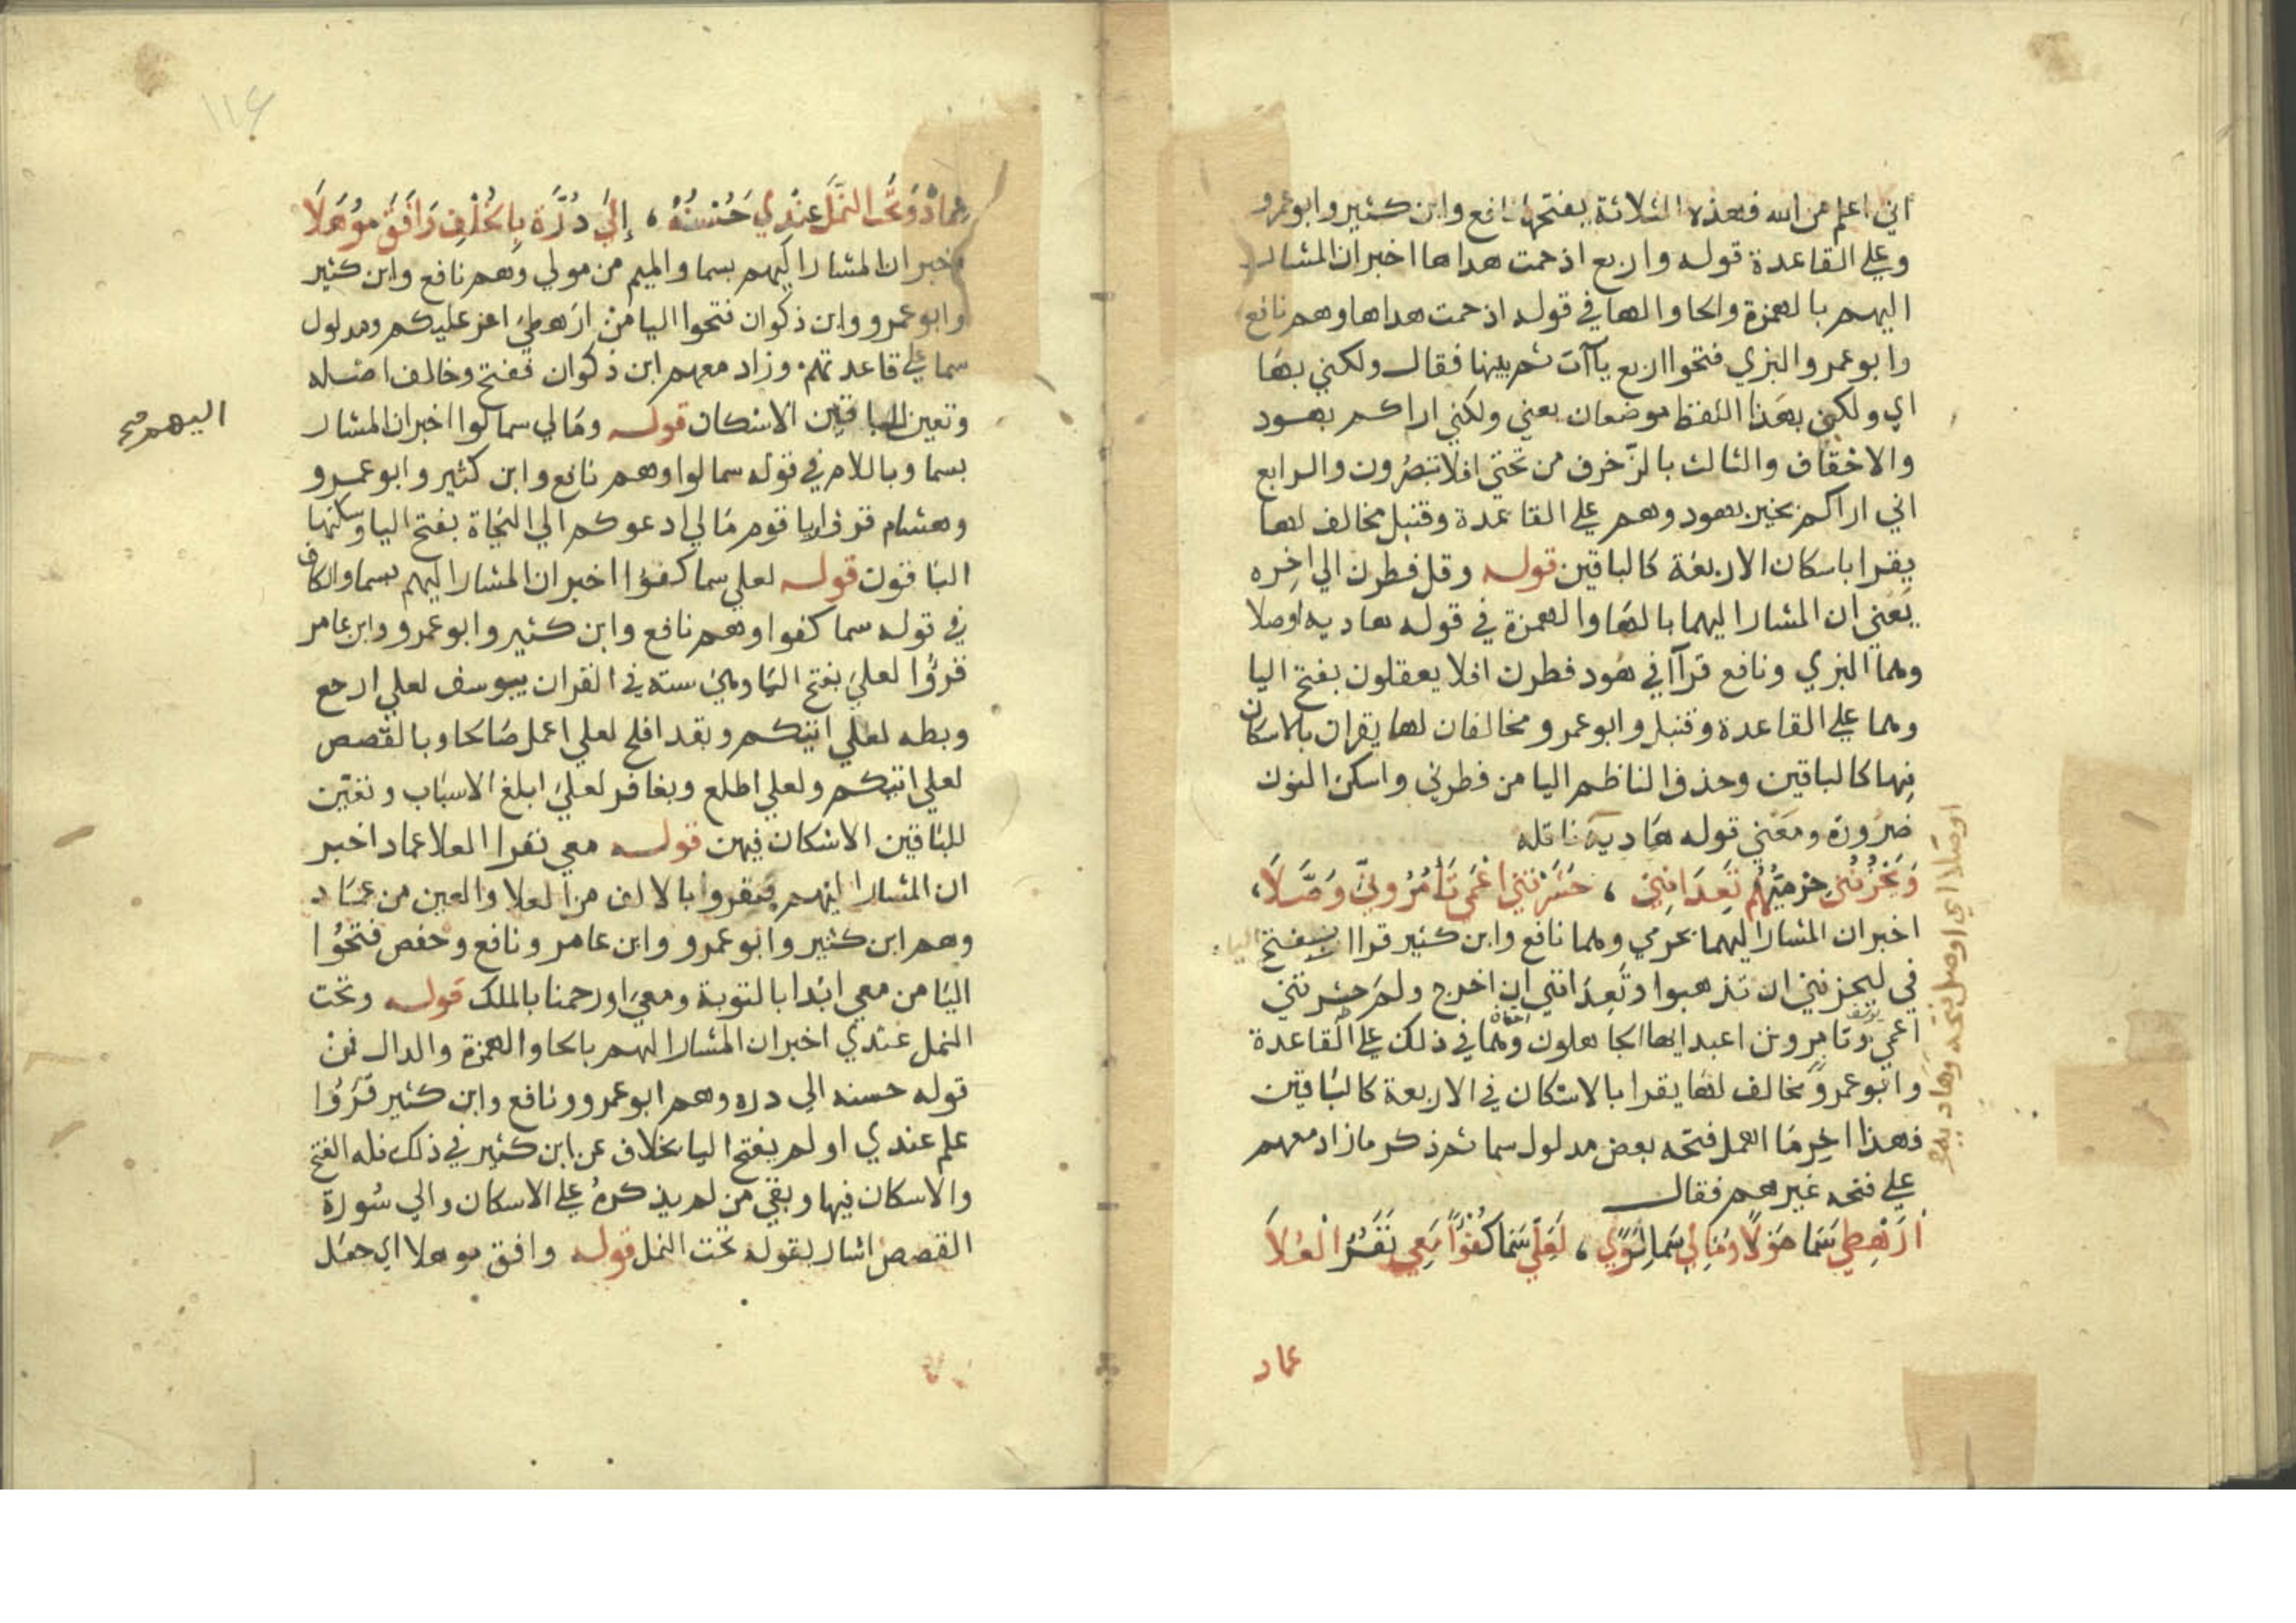 اني اعلم من الله فهذه الثلاثة بفتحها نافع وابن كثير وابو عمرو
وعلي القاعدة قوله واربع اذ حمت هداها اخبر ان المشار
اليهم بالهمزة والحا والها في قوله اذ حمت هداها وهم نافع
وابو عمرو والبزي فتحوا اربع ياآت ثم بينها فقال ولكني بها
اي ولكني بهذا اللفظ موضعان يعني ولكني اراكم بهود
والاحقاف والثالث بالزخرف من تحتي افلا تبصرون والرابع
اني اراكم بخير بهود وهم علي القاعدة وقنبل مخالف لها
يقرا باسكان الاربعة كالباقين قوله وقل فطرن الي اخره
يعني ان المشار اليهما بالها والهمزة في قوله هاديه اوصلا
وهما البزي ونافع قرآ في هود فطرن افلا يعقلون بفتح اليا
وهما علي القاعدة وقنبل وابو عمرو مخالفان لها يقران بالاسكان
فيها كالباقين وحذف الناظم اليا من فطرني واسكن النون
ضرورة ومعني قوله هاديه ناقله
وَيَحْزُنُنِي حِرْمِيُّهُمْ تَعِدَانِنِي ، حَشَرْتَنِي اعْمَى تَأْمُرُونِي وَصَّلَا،
اخبر ان المشار اليهما بحرمي وهما نافع وابن كثير قراا بفتح اليا
في ليحزنني ان تذهبوا وتعدانني ان اخرج ولم حشرتني
اعمي وتامروني اعبد ايها الجاهلون وهما في ذلك علي القاعدة
وابو عمرو مخالف لها يقرا بالاسكان في الاربعة كالباقين
فهذا اخر ما اهمل فتحه بعض مدلول سما ثم ذكر ما زاد معهم
علي فتحه غيرهم فقال
أَرَهْطِي سَمَا مَوْلًا وَمَالِي سَمَا لِوًي ، لَعَلِّي سَمَا كُفْؤًا مَعِي نَفَرُ الْعُلَا
عماد
اوصلا اي اوصل فتحه وهاديه
عِمَادٌ وَتَحْتَ النَّمْلِ عِنْدِي حُسْنُهُ ، إِلَى دُرِّهِ بِالخُلْفِ وَافَقَ مُوهَلَا
اخبر ان المشار اليهم بسما والميم من مولي وهم نافع وابن كثير
وابو عمرو وابن ذكوان فتحوا اليا من ارهطي اعز عليكم ومدلول
سما علي قاعدتهم وزاد معهم ابن ذكوان ففتح وخالف اصله
وتعين للباقين الاسكان قوله ومالي سما لوا اخبر ان المشار
اليهم صح
بسما وباللام في قوله سما لوا وهم نافع وابن كثير وابو عمرو
وهشام قروا يا قوم مالي ادعوكم الي النجاة بفتح اليا وسكنها
الباقون قوله لعلي سما كفؤا اخبر ان المشار اليهم بسما والكاف
في قوله سما كفوا وهم نافع وابن كثير وابو عمرو وابن عامر
قرؤا لعلي بفتح اليا وهي سته في القران بيوسف لعلي ارجع
وبطه لعلي اتيكم وبقد افلح لعلي اعمل صالحا وبالقصص
لعلي اتيكم ولعلي اطلع وبغافر لعلي ابلغ الاسباب وتعين
للباقين الاسكان فيهن قوله معي نفر العلا عماد اخبر
ان المشار اليهم بنفر وبالالف من العلا والعين من عماد
وهم ابن كثير وابو عمرو وابن عامر ونافع وحفص فتحوا
اليا من معي ابدا بالتوبة ومعي اورحمنا بالملك قوله وتحت
النمل عندي اخبر ان المشار اليهم بالحا والهمزة والدال من
قوله حسنه الي دره وهم ابو عمرو ونافع وابن كثير قرؤا
علم عندي اولم بفتح اليا بخلاف عن ابن كثير في ذلك فله الفتح
والاسكان فيها وبقي من لم يذكره علي الاسكان والي سورة
القصص اشار بقوله تحت النمل قوله وافق موهلا اي جعل